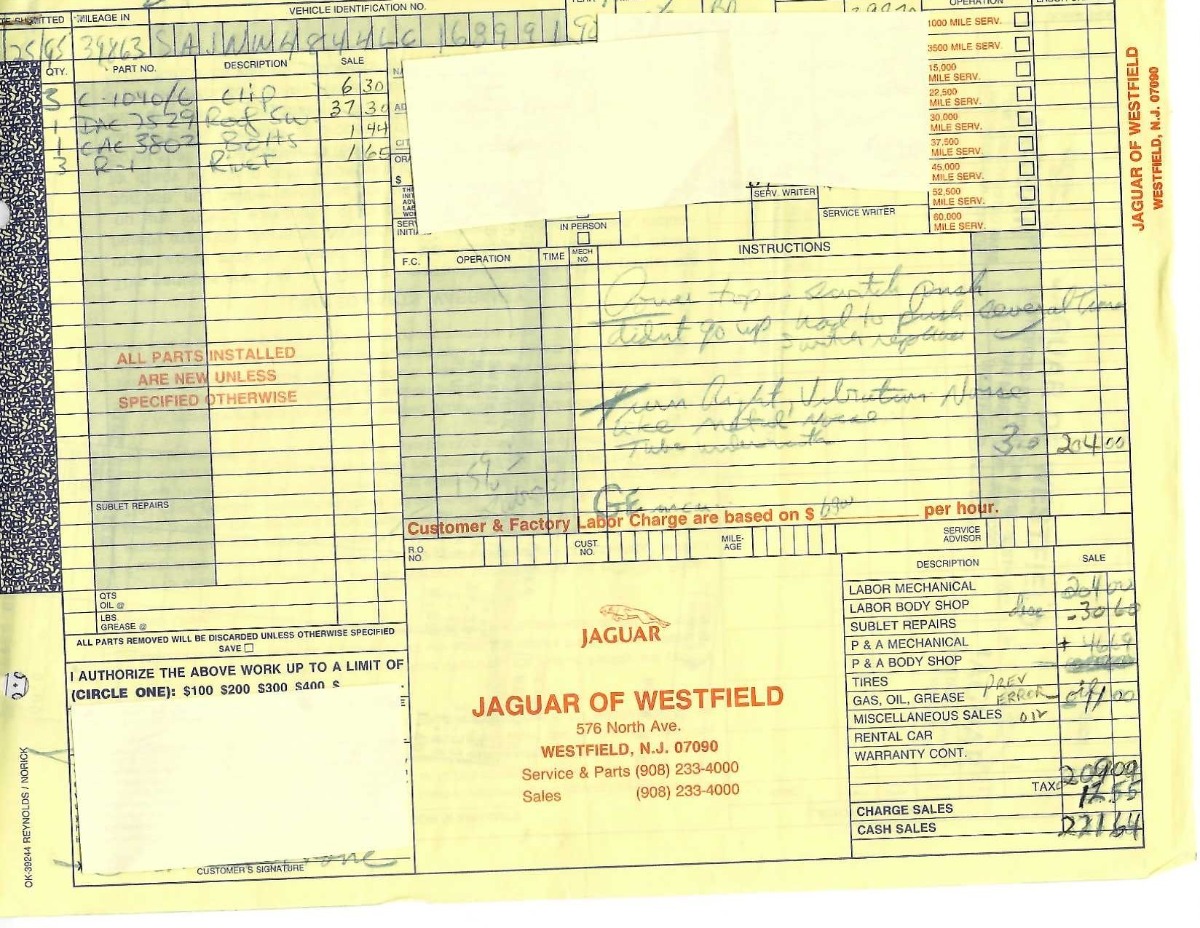 MILEAGE IN
VEHICLE IDENTIFICATION NO.
OPERATION
25/95 39863 SAJNW4844LC168991 90
QTY. PART NO. DESCRIPTION SALE
3 C-1040/6 Clip 6 30
1 DAC 7529 Roof Sw 37 30
1 CAC 3802 Bolts 1 44
3 R-1 Rivet 1 65
1000 MILE SERV.
3500 MILE SERV.
15,000 MILE SERV.
22,500 MILE SERV.
30,000 MILE SERV.
37,500 MILE SERV.
45,000 MILE SERV.
52,500 MILE SERV.
60,000 MILE SERV.
JAGUAR OF WESTFIELD
WESTFIELD, N.J. 07090
SERV. WRITER
SERVICE WRITER
IN PERSON
F.C. OPERATION TIME MECH NO. INSTRUCTIONS
Power top - switch push
didnt go up had to push several time
switch replace
Turn Right, Vibration Noise
like Metal Noise
Tube underneath
3.0 204 00
ALL PARTS INSTALLED
ARE NEW UNLESS
SPECIFIED OTHERWISE
SUBLET REPAIRS
Customer & Factory Labor Charge are based on $ 6800 per hour.
R.O. NO. CUST. NO. MILE-AGE SERVICE ADVISOR
QTS
OIL @
LBS
GREASE @
ALL PARTS REMOVED WILL BE DISCARDED UNLESS OTHERWISE SPECIFIED
SAVE
I AUTHORIZE THE ABOVE WORK UP TO A LIMIT OF
(CIRCLE ONE): $100 $200 $300 $400 $
CUSTOMER'S SIGNATURE
OK-39244 REYNOLDS / NORICK
JAGUAR
JAGUAR OF WESTFIELD
576 North Ave.
WESTFIELD, N.J. 07090
Service & Parts (908) 233-4000
Sales (908) 233-4000
DESCRIPTION SALE
LABOR MECHANICAL 204 00
LABOR BODY SHOP disc -30 60
SUBLET REPAIRS
P & A MECHANICAL + 46 69
P & A BODY SHOP
TIRES
GAS, OIL, GREASE PREV ERROR
MISCELLANEOUS SALES
RENTAL CAR
WARRANTY CONT.
209 09
TAX 12.55
CHARGE SALES
CASH SALES 221 64